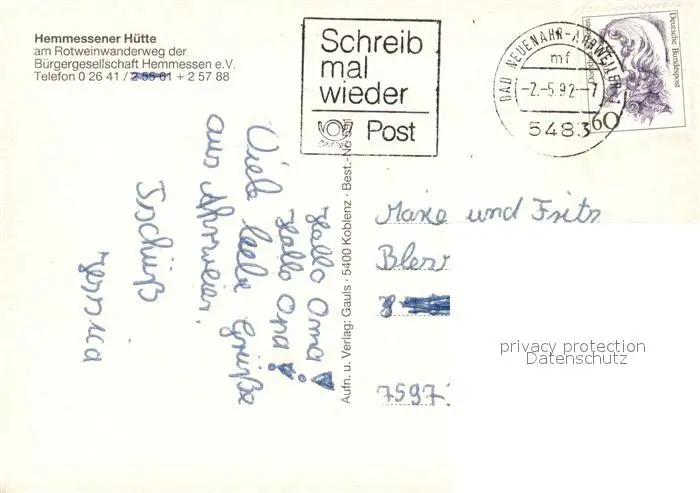 Hemmessener Hütte
am Rotweinwanderweg der
Bürgergesellschaft Hemmessen e.V.
Telefon 0 26 41 / 2 55 61 + 2 57 88
Schreib
mal
wieder
Post
BAD NEUENAHR-AHRWEILER 1
mf
-2.-5.92-7
5483
Deutsche Bundespost
60
Hallo Oma!
Hallo Opa!
Viele liebe Grüße
aus Ahrweiler.
Tschüß
Aufn. u. Verlag: Gauls · 5400 Koblenz · Best.-No
und Fritz
7597
privacy protection
Datenschutz